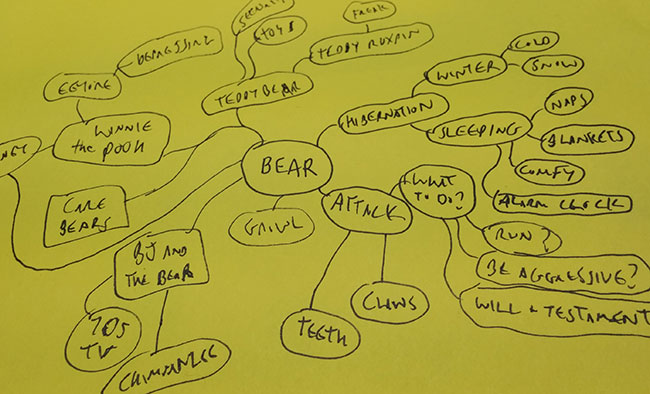 SECURITY
TOYS
FREAK
TEDDY RUXPIN
DEPRESSING
EEYORE
TEDDY BEAR
WINTER
COLD
SNOW
HIBERNATION
NAPS
WINNIE
the POOH
SLEEPING
BLANKETS
BEAR
WHAT
TO DO?
COMFY
CARE
BEARS
ATTACK
ALARM CLOCK
GROWL
RUN?
BJ AND
THE BEAR
BE AGGRESSIVE?
CLAWS
WILL & TESTAMENT
70s
TV
TEETH
CHIMPANZEE